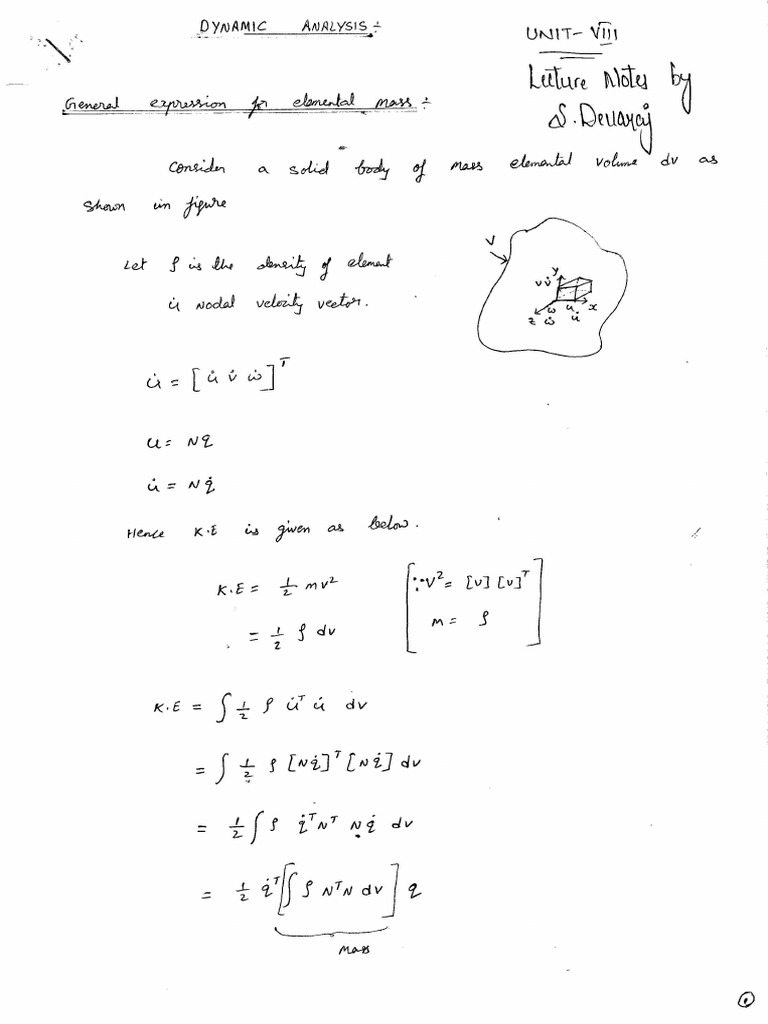 DYNAMIC ANALYSIS÷
UNIT-VIII
Lecture Notes by
S. Devaraj
General expression for elemental mass÷
Consider a solid body of mass elemental volume dv as
shown in figure
Let ρ is the density of element
u̇ nodal velocity vector.
V
y
v v̇
w u x
z ẇ u̇
u̇ = [u̇ v̇ ẇ]ᵀ
u = Nq
u̇ = Nq̇
Hence K.E is given as below.
K.E = 1/2 mv²
[∵ v² = [v] [v]ᵀ
= 1/2 ρ dv
m = ρ]
K.E = ∫ 1/2 ρ u̇ᵀ u̇ dv
= ∫ 1/2 ρ [Nq̇]ᵀ [Nq̇] dv
= 1/2 ∫ ρ q̇ᵀNᵀ Nq̇ dv
= 1/2 q̇ᵀ[∫ ρ NᵀN dv] q
mass
1